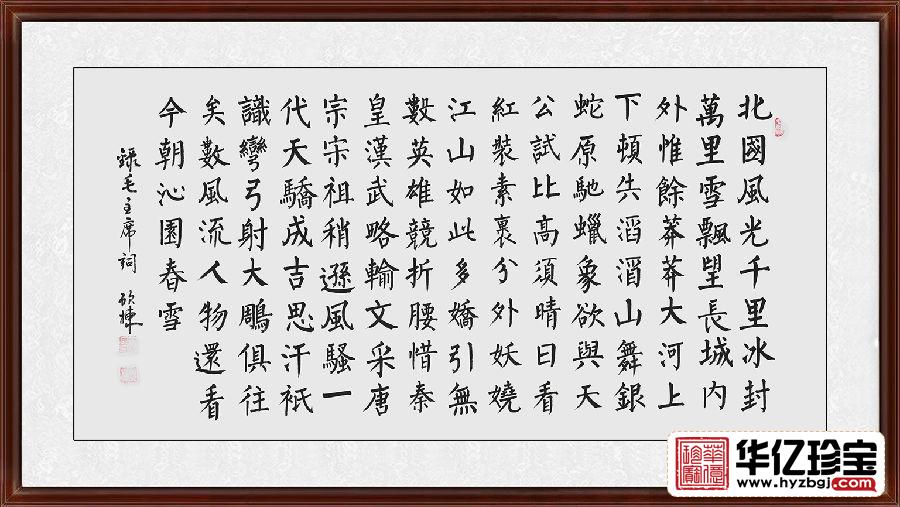 北國風光千里冰封
萬里雪飄望長城内
外惟餘莽莽大河上
下頓失滔滔山舞銀
蛇原馳蠟象欲與天
公試比高須晴日看
紅裝素裹分外妖嬈
江山如此多嬌引無
數英雄競折腰惜秦
皇漢武略輸文采唐
宗宋祖稍遜風騷一
代天驕成吉思汗祇
識彎弓射大鵰俱往
矣數風流人物還看
今朝沁園春雪
錄毛主席詞
華億珍寶
华亿珍宝
www.hyzbgj.com